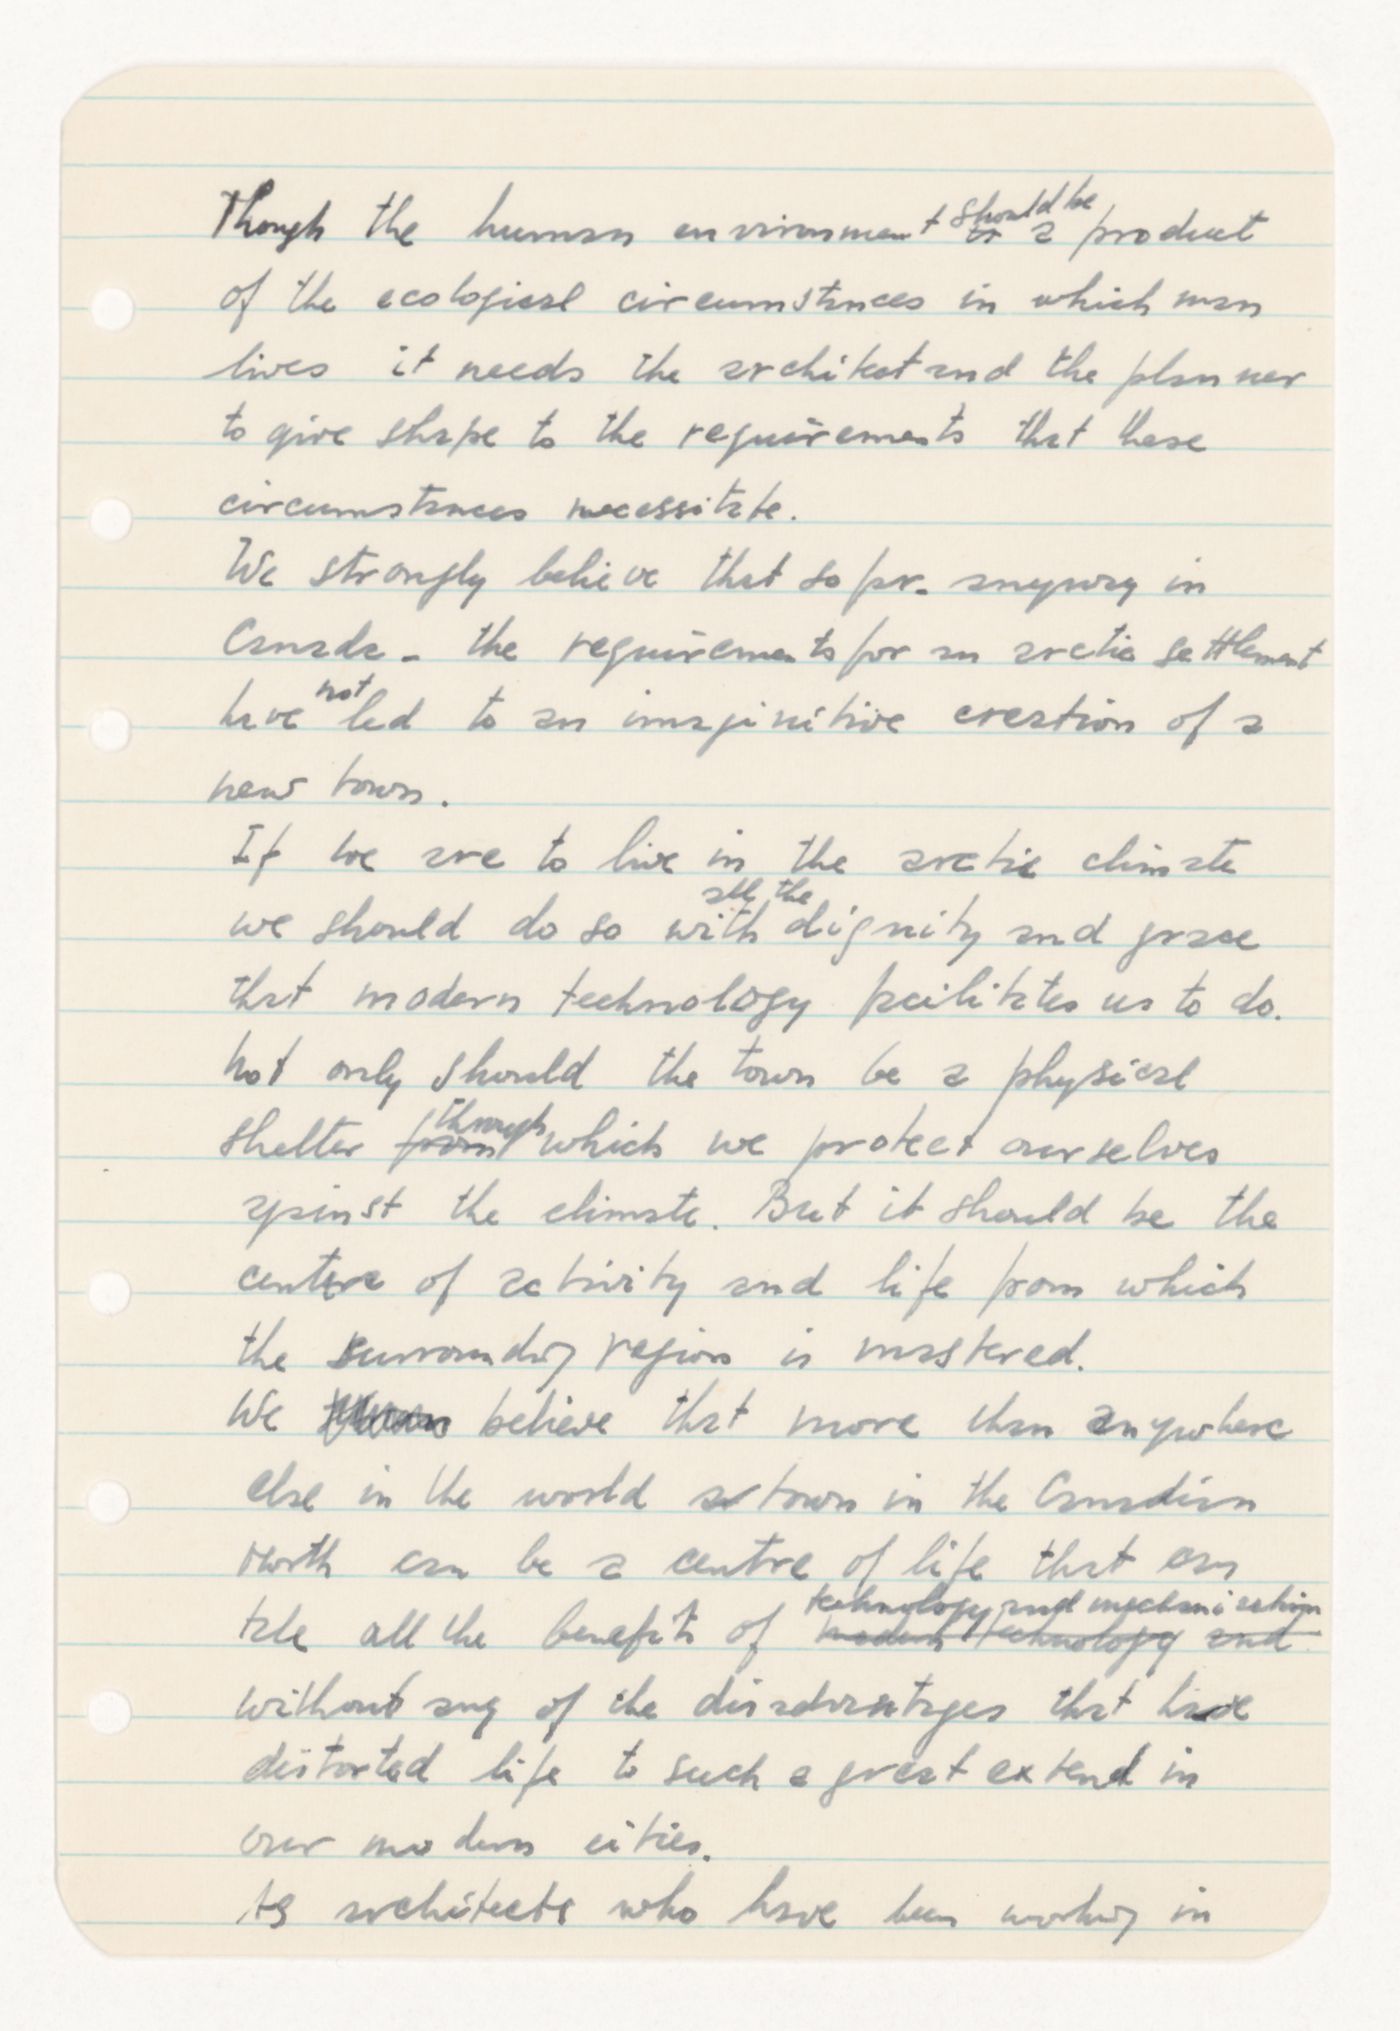 Though the human environment should be a product
of the ecological circumstances in which man
lives it needs the architect and the planner
to give shape to the requirements that these
circumstances necessitate.
We strongly believe that so far - anyway in
Canada - the requirements for an arctic settlement
have not led to an imaginitive creation of a
new town.
If we are to live in the arctic climate
we should do so with all the dignity and grace
that modern technology facilitates us to do.
Not only should the town be a physical
shelter from through which we protect ourselves
against the climate. But it should be the
centre of activity and life from which
the surrounding region is mastered.
We believe that more than anywhere
else in the world a town in the Canadian
north can be a centre of life that can
take all the benefits of technology and mechanization
modern technology and
without any of the disadvantages that have
distorted life to such a great extend in
our modern cities.
As architects who have been working in